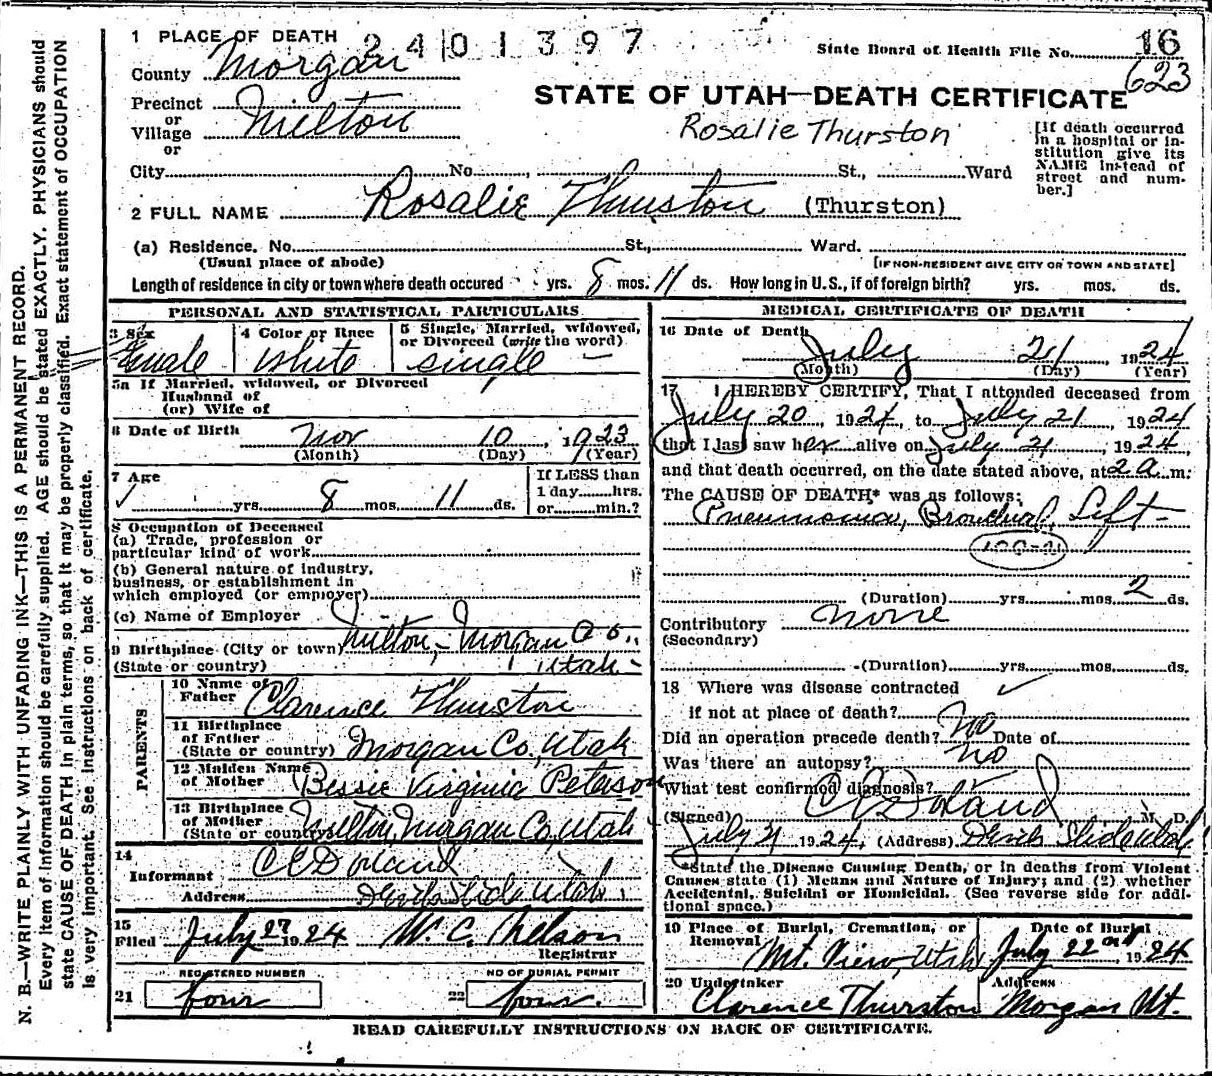 1 PLACE OF DEATH 2401397
State Board of Health File No. 16
County Morgan
623
Precinct
or
Village Milton
or
STATE OF UTAH—DEATH CERTIFICATE
Rosalie Thurston
[If death occurred
in a hospital or in-
stitution give its
NAME instead of
street and num-
ber.]
City No. St., Ward
2 FULL NAME Rosalie Thurston (Thurston)
(a) Residence. No. St., Ward.
(Usual place of abode) [IF NON-RESIDENT GIVE CITY OR TOWN AND STATE]
Length of residence in city or town where death occured yrs. 8 mos. 11 ds. How long in U.S., if of foreign birth? yrs. mos. ds.
PERSONAL AND STATISTICAL PARTICULARS
3 Sex
Female
4 Color or Race
White
5 Single, Married, widowed,
or Divorced (write the word)
single –
5a If Married, widowed, or Divorced
Husband of
(or) Wife of
6 Date of Birth Nov 10, 1923
(Month) (Day) (Year)
7 Age
yrs. 8 mos. 11 ds.
If LESS than
1 day hrs.
or min.?
8 Occupation of Deceased
(a) Trade, profession or
particular kind of work
(b) General nature of industry,
business, or establishment in
which employed (or employer)
(c) Name of Employer
9 Birthplace (City or town) Milton, – Morgan Co.,
(State or country) Utah –
PARENTS
10 Name of
Father Clarence Thurston
11 Birthplace
of Father
(State or country) Morgan Co, Utah
12 Maiden Name
of Mother Bessie Virginia Peterson
13 Birthplace
of Mother
(State or country) Milton, Morgan Co, Utah
14
Informant C E Dorland
Address Devils Slide Utah.
15
Filed July 27 1924 W. C. Nelson
Registrar
REGISTERED NUMBER NO OF BURIAL PERMIT
21 four 22 four.
MEDICAL CERTIFICATE OF DEATH
16 Date of Death
July 21 1924
(Month) (Day) (Year)
17 I HEREBY CERTIFY, That I attended deceased from
July 20, 1924, to July 21, 1924
that I last saw her alive on July 21, 1924,
and that death occurred, on the date stated above, at 2 a m:
The CAUSE OF DEATH* was as follows:
Pneumonia, Bronchial, Left –
(Duration) yrs. mos. 2 ds.
Contributory None
(Secondary)
(Duration) yrs. mos. ds.
18 Where was disease contracted
if not at place of death?
Did an operation precede death? No Date of
Was there an autopsy? No
What test confirmed diagnosis?
(Signed) C E Dorland, M. D.
July 21 1924, (Address) Devils Slide Utah
*State the Disease Causing Death, or in deaths from Violent
Causes state (1) Means and Nature of Injury; and (2) whether
Accidental, Suicidal or Homicidal. (See reverse side for addi-
tional space.)
19 Place of Burial, Cremation, or
Removal
Mt. View, Utah
Date of Burial
July 22nd, 1924
20 Undertaker
Clarence Thurston
Address
Morgan Ut.
READ CAREFULLY INSTRUCTIONS ON BACK OF CERTIFICATE.
N. B.—WRITE PLAINLY WITH UNFADING INK—THIS IS A PERMANENT RECORD.
Every item of information should be carefully supplied. AGE should be stated EXACTLY. PHYSICIANS should
state CAUSE OF DEATH in plain terms, so that it may be properly classified. Exact statement of OCCUPATION
is very important. See instructions on back of certificate.